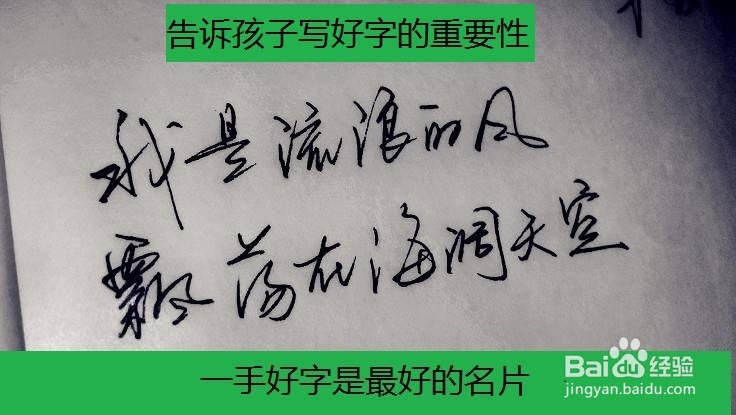 告诉孩子写好字的重要性
我是流浪的风
飘荡在海阔天空
一手好字是最好的名片
Baidu经验
jingyan.baidu.com